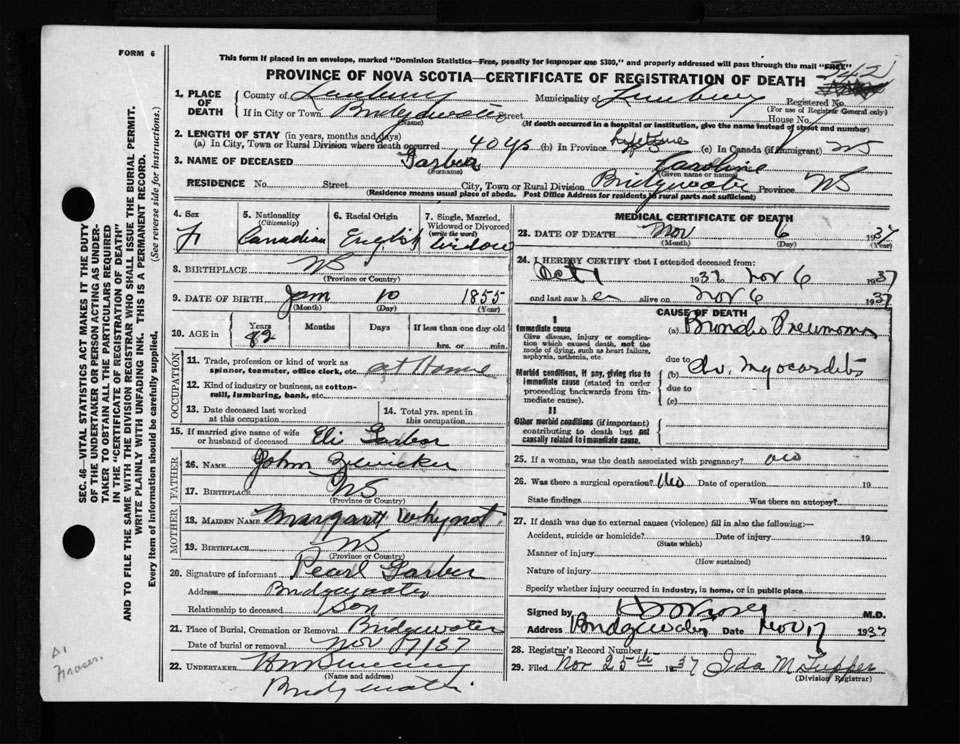 FORM 6
This form if placed in an envelope, marked "Dominion Statistics—Free, penalty for improper use $300," and properly addressed will pass through the mail "FREE"
PROVINCE OF NOVA SCOTIA—CERTIFICATE OF REGISTRATION OF DEATH 342
1. PLACE OF DEATH County of Lunenburg Municipality of Lunenburg Registered No.
(For use of Registrar General only)
If in City or Town Bridgewater Street House No.
(Name) (If death occurred in a hospital or institution, give the name instead of street and number)
2. LENGTH OF STAY (in years, months and days)
(a) In City, Town or Rural Division where death occurred 40 ys (b) In Province lifetime (c) In Canada (if immigrant) NS
3. NAME OF DECEASED Garber Caroline
(Surname) (Given name or names)
RESIDENCE No. Street City, Town or Rural Division Bridgewater Province NS
(Residence means usual place of abode. Post Office Address for residents in rural parts not sufficient)
4. Sex F
5. Nationality (Citizenship) Canadian
6. Racial Origin English
7. Single, Married, Widowed or Divorced (write the word) Widow
8. BIRTHPLACE NS
(Province or Country)
9. DATE OF BIRTH Jan 10 1855
(Month) (Day) (Year)
10. AGE in Years 82 Months Days If less than one day old hrs. or min.
OCCUPATION
11. Trade, profession or kind of work as spinner, teamster, office clerk, etc. at Home
12. Kind of industry or business, as cotton-mill, lumbering, bank, etc.
13. Date deceased last worked at this occupation
14. Total yrs. spent in this occupation
15. If married give name of wife or husband of deceased Eli Garber
FATHER
16. NAME John Zwicker
17. BIRTHPLACE NS
(Province or Country)
MOTHER
18. MAIDEN NAME Margarett Whynot.
19. BIRTHPLACE NS
(Province or Country)
20. Signature of informant Pearl Garber
Address Bridgewater
Relationship to deceased Son
21. Place of Burial, Cremation or Removal Bridgewater
Date of burial or removal Nov 17/37
22. UNDERTAKER
(Name and address)
Bridgewater
MEDICAL CERTIFICATE OF DEATH
23. DATE OF DEATH Nov 6 1937
(Month) (Day) (Year)
24. I HEREBY CERTIFY that I attended deceased from:
Oct 1 1937 Nov 6 1937
and last saw her alive on Nov 6 1937
CAUSE OF DEATH
I
Immediate cause
Give disease, injury or complication which caused death, not the mode of dying, such as heart failure, asphyxia, asthenia, etc.
(a) Broncho Pneumonia
due to
Morbid conditions, if any, giving rise to immediate cause (stated in order proceeding backwards from immediate cause).
(b) Chr. Myocarditis
due to
(c)
II
Other morbid conditions (if important) contributing to death but not causally related to immediate cause.
25. If a woman, was the death associated with pregnancy? no
26. Was there a surgical operation? No Date of operation 19
State findings Was there an autopsy?
27. If death was due to external causes (violence) fill in also the following:—
Accident, suicide or homicide? Date of injury 19
(State which)
Manner of injury
(How sustained)
Nature of injury
Specify whether injury occurred in industry, in home, or in public place
Signed by M.D.
Address Bridgewater Date Nov 17 1937
28. Registrar's Record Number
29. Filed Nov 25th 1937 Ida M Tupper
(Division Registrar)
SEC. 46—VITAL STATISTICS ACT MAKES IT THE DUTY
OF THE UNDERTAKER OR PERSON ACTING AS UNDER-
TAKER TO OBTAIN ALL THE PARTICULARS REQUIRED
IN THE "CERTIFICATE OF REGISTRATION OF DEATH"
AND TO FILE THE SAME WITH THE DIVISION REGISTRAR WHO SHALL ISSUE THE BURIAL PERMIT.
WRITE PLAINLY WITH UNFADING INK. THIS IS A PERMANENT RECORD.
Every item of information should be carefully supplied. (See reverse side for instructions.)